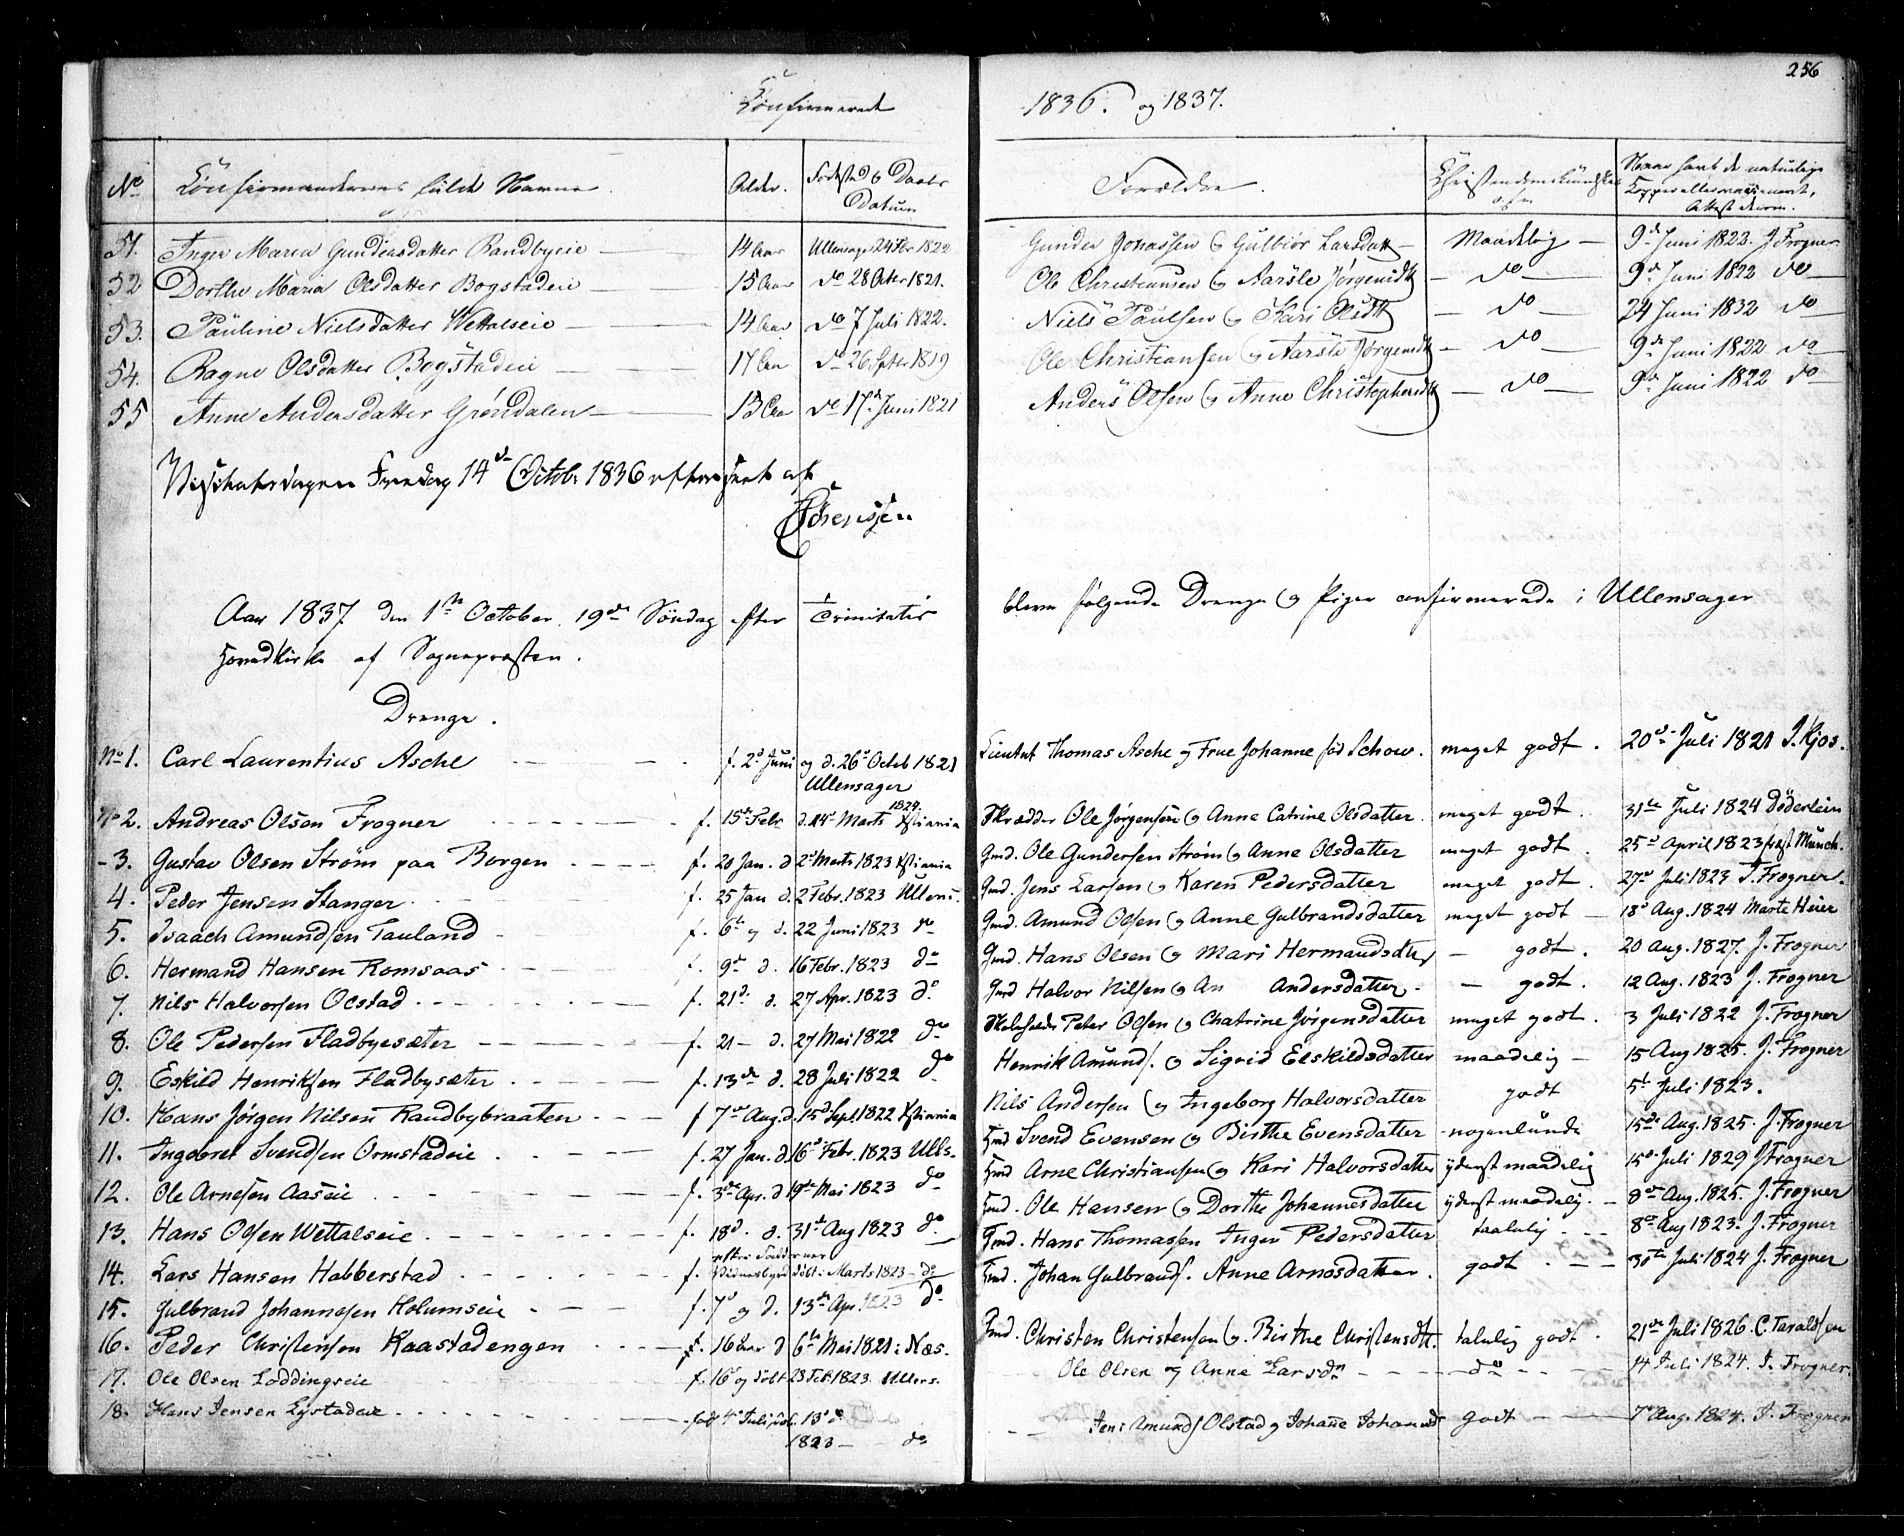 256
Confirmerede 1836. og 1837.
No Confirmandernes fulde Navne. Alder. Fødested & Daabs Datum Forældre. Christendomskundskab Naar havt de naturlige Kopper eller vaccineret, Attest derom.
51. Inger Maria Gundersdatter Randbyeie 14 Aar Ullensager 24 Febr 1822 Gunder Johnssen & Gulbiør Larsdatt Maadelig 9de Juni 1822. J. Frogner
52 Dorthe Maria Olsdatter Bogstadeie 15 Aar do 28 Octbr 1821. Ole Christiansen & Aarsle Jørgensdt do 9de Juni 1822 do
53. Pauline Nielsdatter Wettalseie 14 Aar do 7 Juli 1822. Niels Paulsen & Kari Olsdtt do 24 Juni 1832 do
54. Ragne Olsdatter Bogstadeie 17 Aar do 26 Septr 1819 Ole Christiansen & Aarsle Jørgensdt do 9de Juni 1822 do
55 Anne Andersdatter Grøndalen 15 Aar do 17de Juni 1821 Anders Olsen & Anne Christophersdtt do 9de Juni 1822 do
Visitatsdagen Fredag 14de Octobr 1836 efterseet af
Sørenssen
Aar 1837 den 1ste October 19de Søndag efter Trinitatis bleve følgende Drenge & Piger confirmerede i Ullensager
Hovedkirke af Sognepresten.
Drenge.
No 1. Carl Laurentius Asche f. 2d Juni og d. 26d Octob 1821 Lieutnt Thomas Asche og Frue Johanne fød Schow. meget godt. 20de Juli 1821 J. Kjos.
Ullensager
No 2. Andreas Olsen Frogner f. 15de Febr. d. 14d Marts 1824. Xstiania Skrædder Ole Jørgensen & Anne Catrine Olsdatter. meget godt. 31te Juli 1824 Døderlein
- 3. Gustav Olsen Strøm paa Borgen f. 20 Jan. d 2d Marts 1823 Xstiania Gmd. Ole Gundersen Strøm & Anne Olsdatter meget godt. 25d April 1823 prst Munch.
4. Peder Jensen Stanger f. 25 Jan d. 2 Febr. 1823 Ullens. Gmd. Jens Larsen & Karen Pedersdatter meget godt. 27d Juli 1823 J. Frogner.
5. Isaach Amundsen Tauland f. 6te og d. 22 Juni 1823 do Gmd. Amund Olsen & Anne Gulbrandsdatter meget godt 18d Aug. 1824 Marte Heier
6. Hermand Hansen Romsaas f. 9de d. 16 Febr. 1823 do Gmd. Hans Olsen & Mari Hermandsdtr godt. 20 Aug. 1827. J. Frogner
7. Nils Halvorsen Olstad f. 21d. d. 27 Apr. 1823 do Gmd Halvor Nilsen & An Andersdatter godt. 12 Aug. 1823 J. Frogner
8. Ole Pedersen Fladbyesæter f. 21 - d. 27 Mai 1822 do Skoleholdr Peter Olsen & Chatrine Jørgensdatter meget godt. 3 Juli 1822 J. Frogner
9. Eskild Henriksen Fladbysæter f. 13de d. 28 Juli 1822 do Henrik Amunds. & Sigrid Elskildsdatter maadelig 15 Aug 1825. J. Frogner
10. Hans Jørgen Nilsen Randbybraaten f 7de Aug. d. 15d Sept. 1822 Xstiania Nils Andersen & Ingeborg Halvorsdatter godt 5te Juli 1823.
11. Ingebret Svendsen Ormstadeie f. 27 Jan. d. 16d Febr. 1823 Ulls. Gmd Svend Evensen & Birthe Evensdatter nogenlunde 15de Aug. 1825. J. Frogner
12. Ole Arnesen Aaseie f. 3de Apr. d 19de Mai 1823 do Gmd Arne Christiansen & Kari Halvorsdatter yderst maadelig 15d Juli 1829 J Frogner
13. Hans Olsen Wettalseie f. 18d. d. 31te Aug 1823 do Gmd. Ole Hansen & Dorthe Johannesdatter yderst maadelig. 8de Aug. 1825. J. Frogner
14. Lars Hansen Habberstad f. efter Faddernes Vidnesbyrd døbt i Marts 1823 do Gmd. Hans Thomassen Inger Pedersdatter taalelig 8de Aug 1823. J. Frogner
15. Gulbrand Johannesen Holumseie f. 7d og d. 13de Apr. 1823 do Gmd. Johan Gulbrands. Anne Arnesdatter. godt. 30te Juli 1824 J. Frogner
16. Peder Christensen Kaastadengen f. 16 d 6te Mai 1821 i Næs. Gmd. Christen Christensen & Birthe Christensdtt. talelig godt. 21de Juli 1826. C. Taraldsen
17. Ole Olsen Loddingseie f. 16d og døbt 23 Feb. 1823 Ullens. Ole Olsen og Anne Larsdn do 14 Juli 1824. J. Frogner.
18. Hans Jensen Lystadeie fød 4d Juli, døb. 13d Jens Amunds Olstad og Johanne Johannsd godt 7d Aug. 1824. J. Frogner
1823 - do